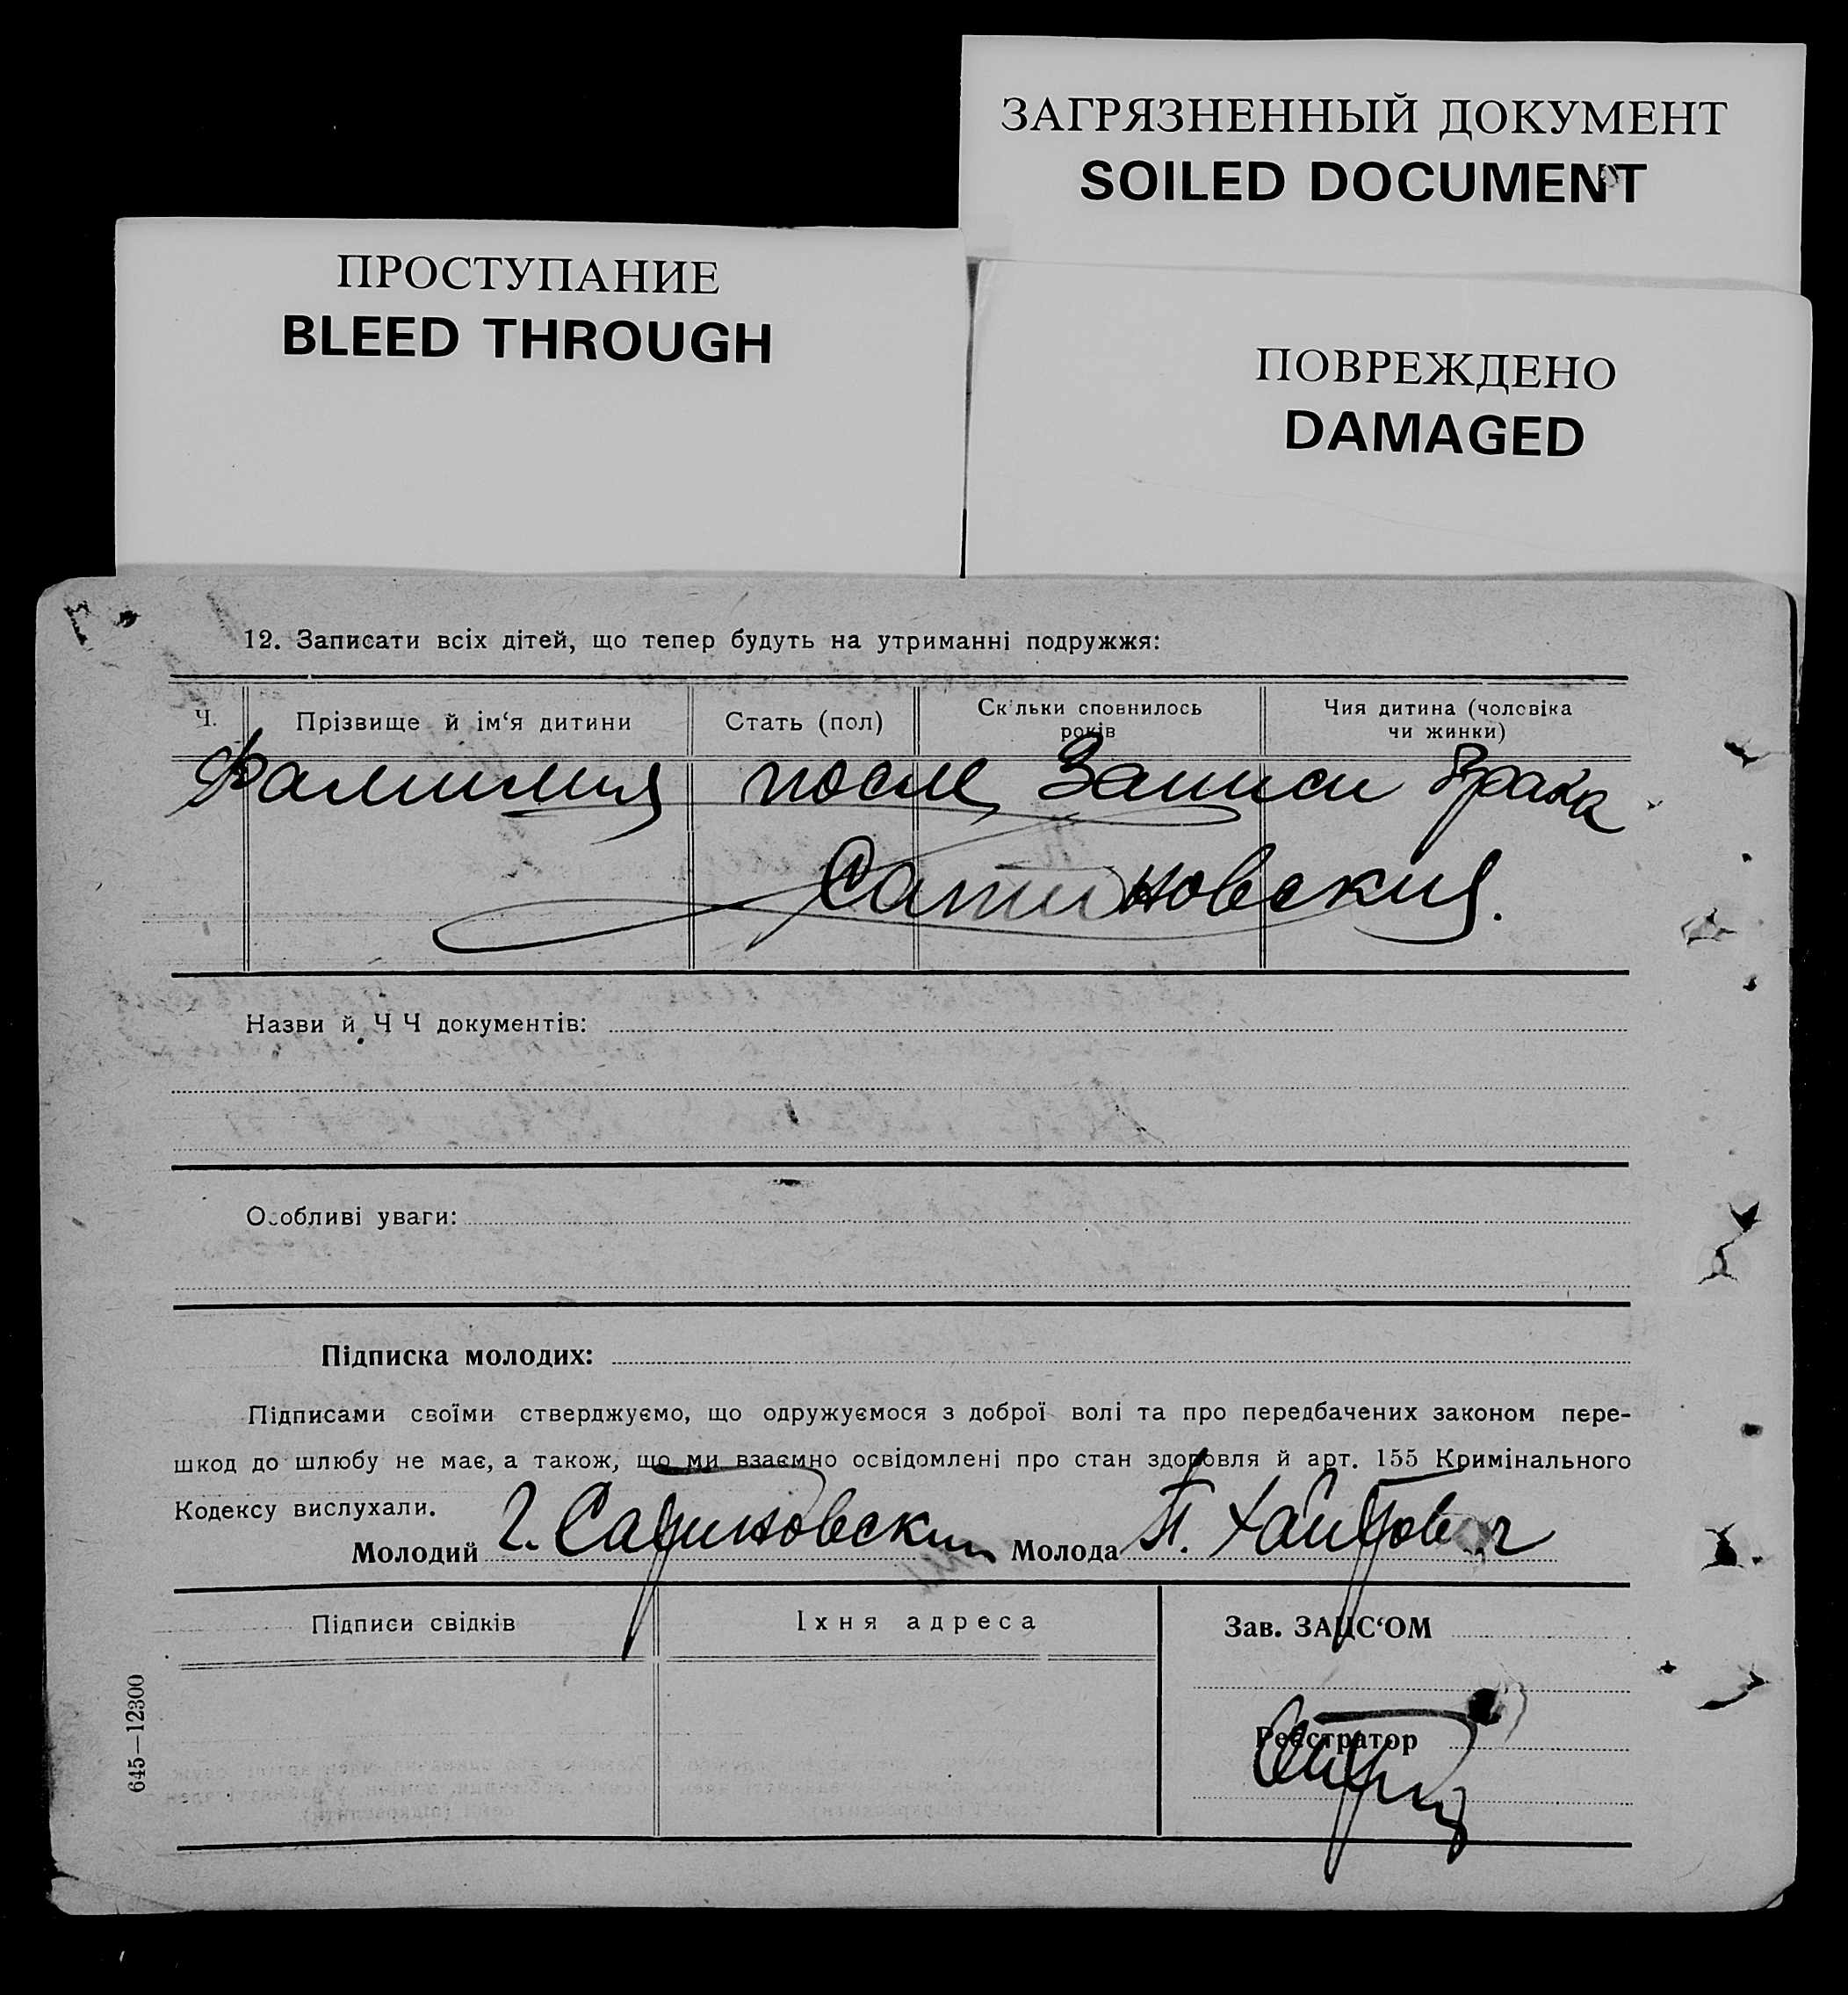 ЗАГРЯЗНЕННЫЙ ДОКУМЕНТ
SOILED DOCUMENT
ПРОСТУПАНИЕ
BLEED THROUGH
ПОВРЕЖДЕНО
DAMAGED
12. Записати всіх дітей, що тепер будуть на утриманні подружжя:
Ч. Прізвище й ім‘я дитини Стать (пол) Скільки сповнилось років Чия дитина (чоловіка чи жинки)
Фамилия после Записи брака
Сатиновский.
Назви й Ч Ч документів:
Особливі уваги:
Підписка молодих:
Підписами своїми стверджуємо, що одружуємося з доброї волі та про передбачених законом пере-
шкод до шлюбу не має, а також, що ми взаємно освідомлені про стан здоровля й арт. 155 Кримінального
Кодексу вислухали.
Молодий Г. Сатиновский Молода П.
Підписи свідків Їхня адреса Зав. ЗАЦС‘ОМ
Реєстратор
645—12300